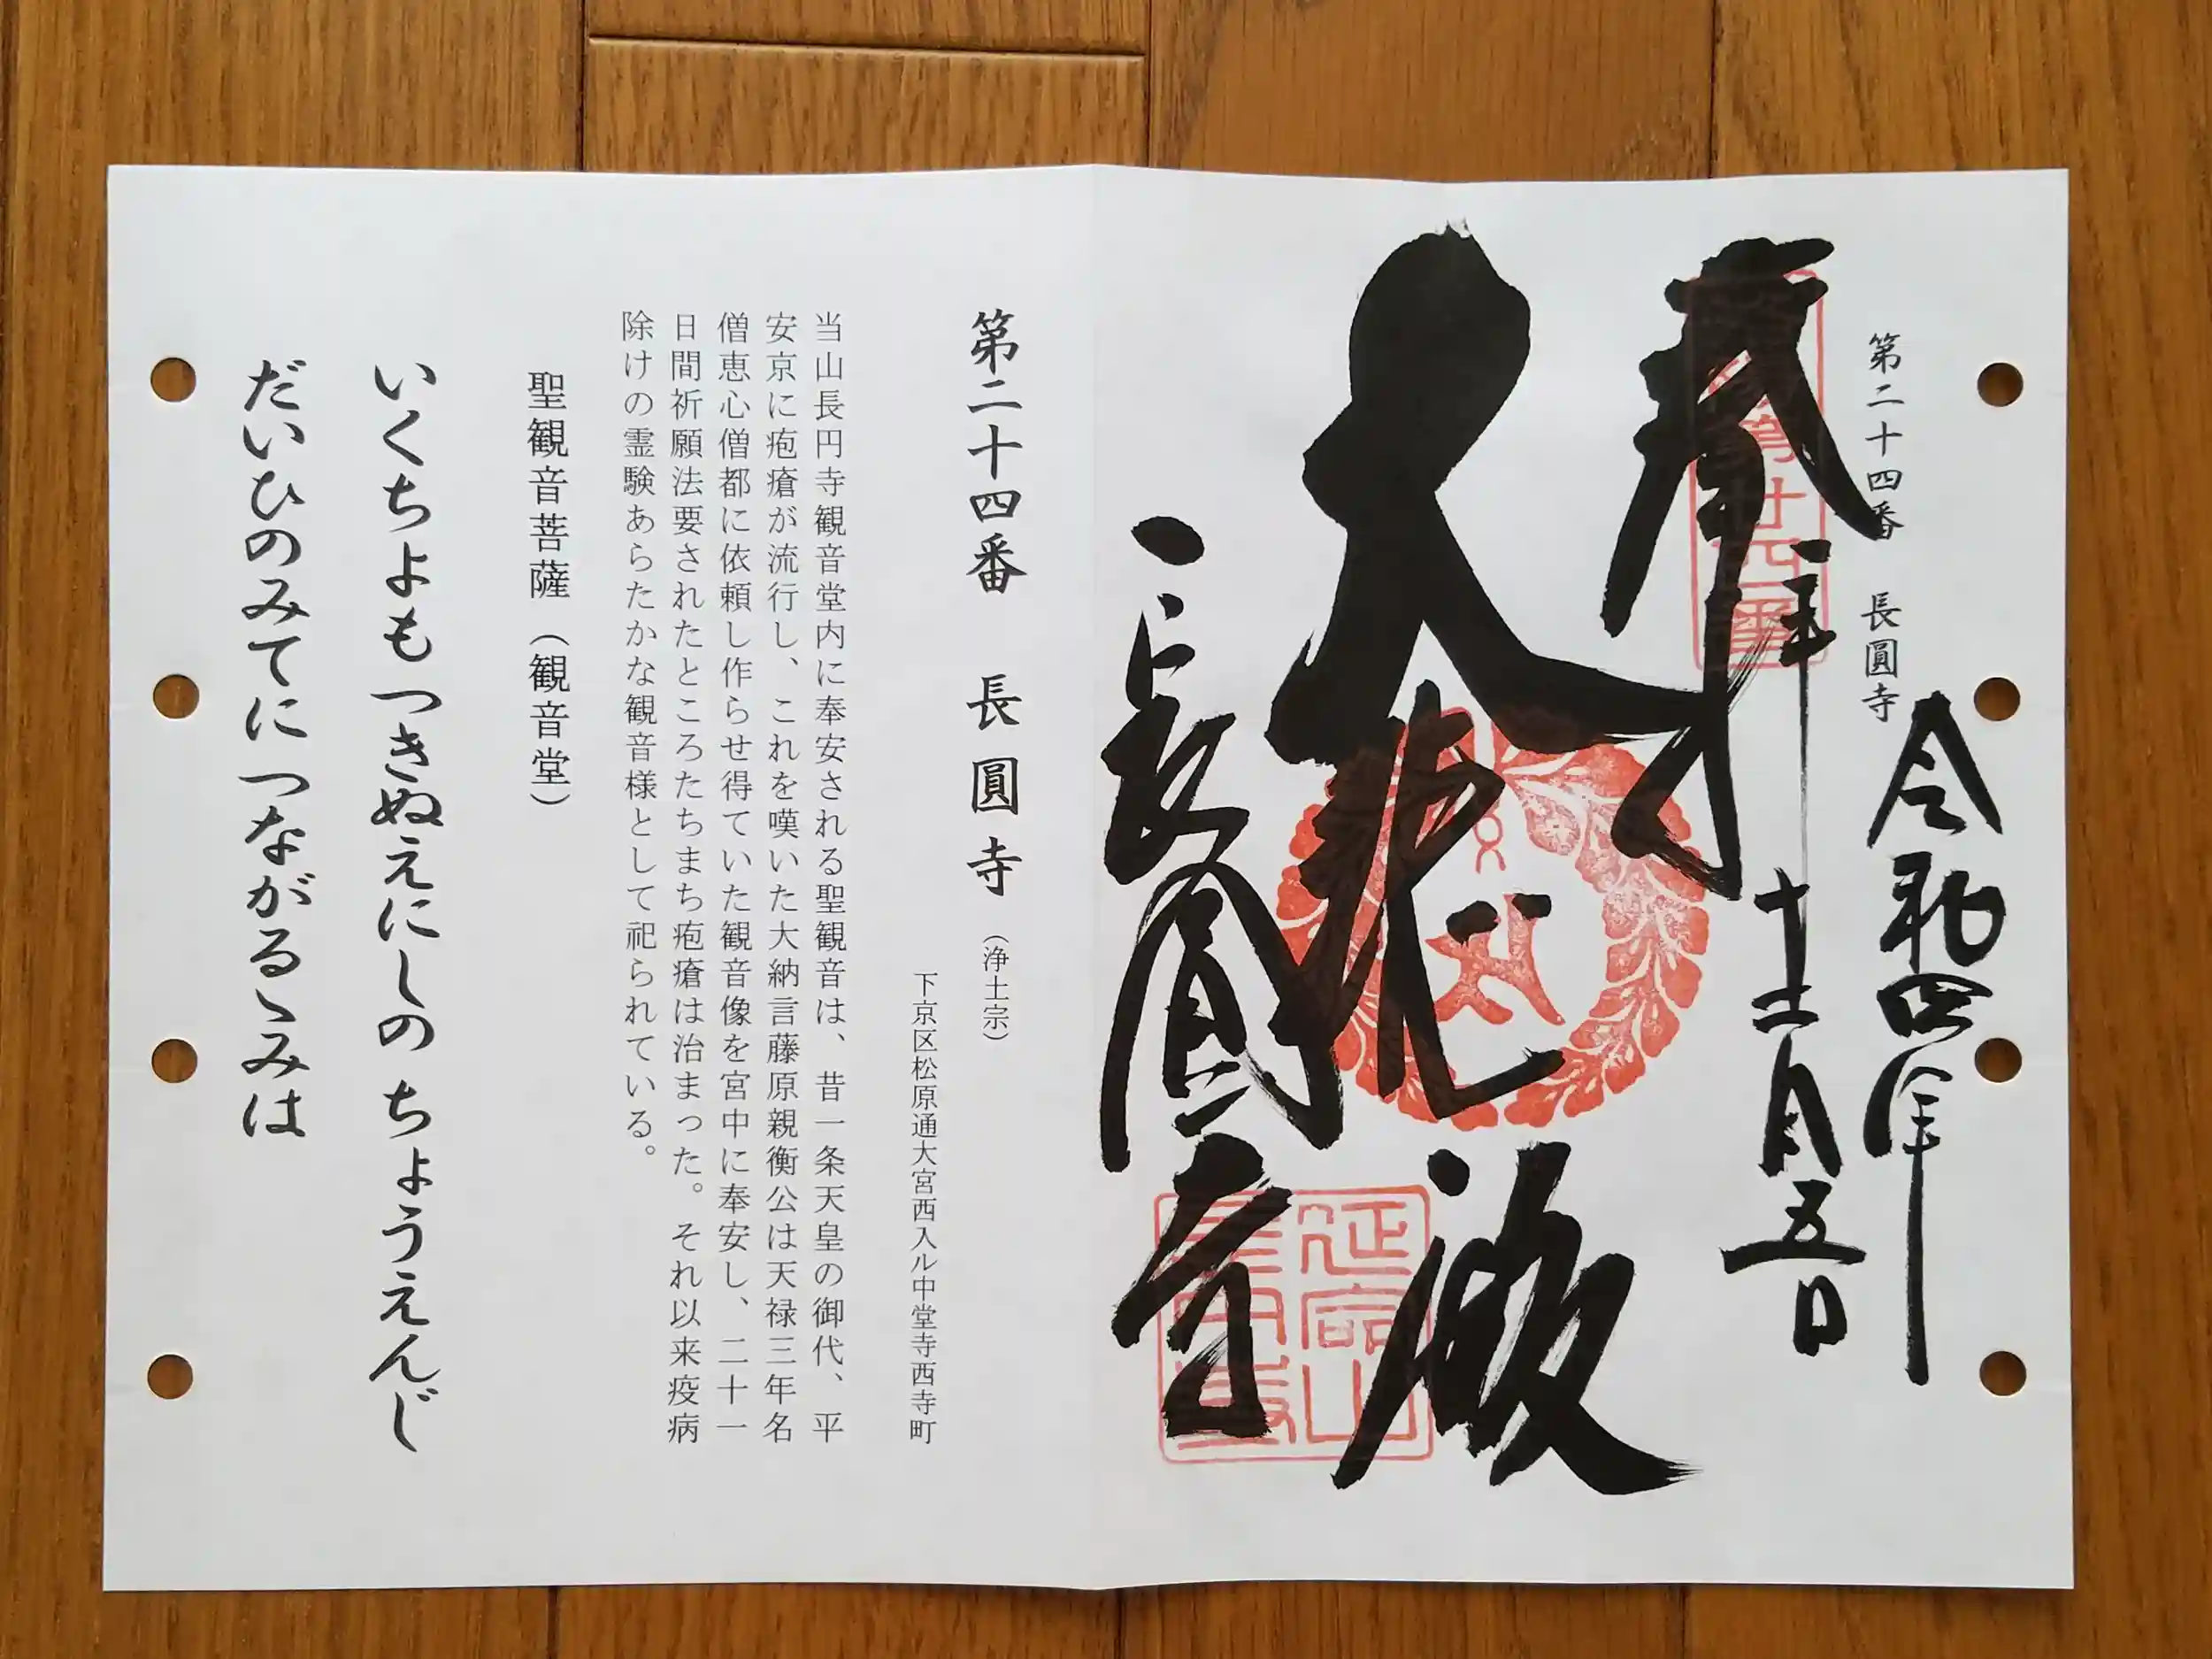 第二十四番　長圓寺
令和四年
十二月五日
奉拝
大悲殿
長圓寺
延命山
第二十四番　長圓寺（浄土宗）
下京区松原通大宮西入ル中堂寺西寺町
当山長円寺観音堂内に奉安される聖観音は、昔一条天皇の御代、平
安京に疱瘡が流行し、これを嘆いた大納言藤原親衡公は天禄三年名
僧恵心僧都に依頼し作らせ得ていた観音像を宮中に奉安し、二十一
日間祈願法要されたところたちまち疱瘡は治まった。それ以来疫病
除けの霊験あらたかな観音様として祀られている。
聖観音菩薩（観音堂）
いくちよもつきぬえにしの ちょうえんじ
だいひのみてに つながるゝみは